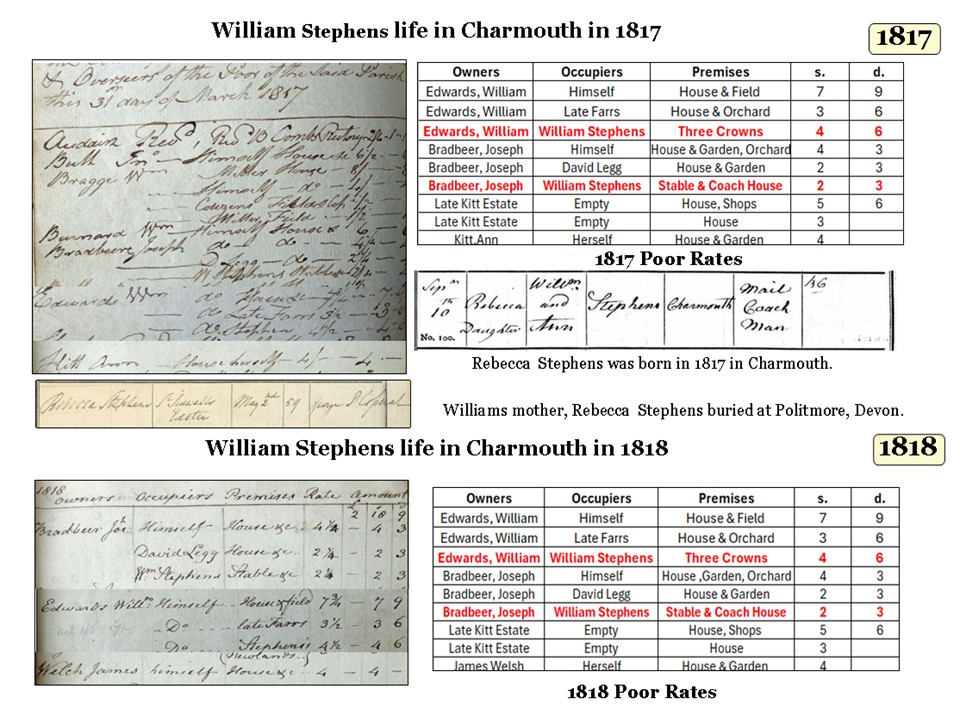 William Stephens life in Charmouth in 1817
1817
& Overseers of the Poor of the Said Parish
this 31 day of March 1817
Butt Jno — Himself House &c
Bragge Wm Miller House
Himself — do
Miller Field
Burnard Wm — Himself House &
Bradbeer Joseph do — do
D Legg — do
W Stephens Stables
Edwards Wm do House &c
do Late Farrs 3½ — 3 6
do Stephens 4½
Kitt Ann — House herself — 4/- — 4 -
Owners Occupiers Premises s. d.
Edwards, William Himself House & Field 7 9
Edwards, William Late Farrs House & Orchard 3 6
Edwards, William William Stephens Three Crowns 4 6
Bradbeer, Joseph Himself House & Garden, Orchard 4 3
Bradbeer, Joseph David Legg House & Garden 2 3
Bradbeer, Joseph William Stephens Stable & Coach House 2 3
Late Kitt Estate Empty House, Shops 5 6
Late Kitt Estate Empty House 3
Kitt.Ann Herself House & Garden 4
1817 Poor Rates
Sepm
th
10
No. 100.
Rebecca
Daughter
Willm
and
Ann
Stephens
Charmouth
Mail
Coach
Man
Rebecca Stephens was born in 1817 in Charmouth.
Rebecca Stephens St Sidwells Exeter May 2d 59
Williams mother, Rebecca Stephens buried at Politmore, Devon.
William Stephens life in Charmouth in 1818
1818
1818
Owners Occupiers Premises Rate Amount
2 18 9
Bradbeer Jos Himself House &c 4¼ — 4 3
David Legg House &c 2¼ — 2 3
Wm Stephens Stable &c 2¼ — 2 3
Edwards Willm Himself House & field 7¾ — 7 9
Do late Farrs 3½ — 3 6
Do Stephens 4½ — 4 6
(Newlands
Welch James himself House &c 4 — 4 —
Owners Occupiers Premises s. d.
Edwards, William Himself House & Field 7 9
Edwards, William Late Farrs House & Orchard 3 6
Edwards, William William Stephens Three Crowns 4 6
Bradbeer, Joseph Himself House ,Garden, Orchard 4 3
Bradbeer, Joseph David Legg House & Garden 2 3
Bradbeer, Joseph William Stephens Stable & Coach House 2 3
Late Kitt Estate Empty House, Shops 5 6
Late Kitt Estate Empty House 3
James Welsh Herself House & Garden 4
1818 Poor Rates